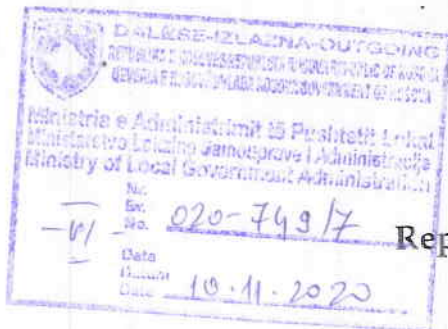 DALËSE-IZLAZNA-OUTGOING
Ministria e Administrimit të Pushtetit Lokal
Ministarstvo Lokalne Samouprave i Administracije
Ministry of Local Government Administration
Nr.
Br.
No. 020-749/7
-VI
Rep
Data
Datum
Date 10.11.2020